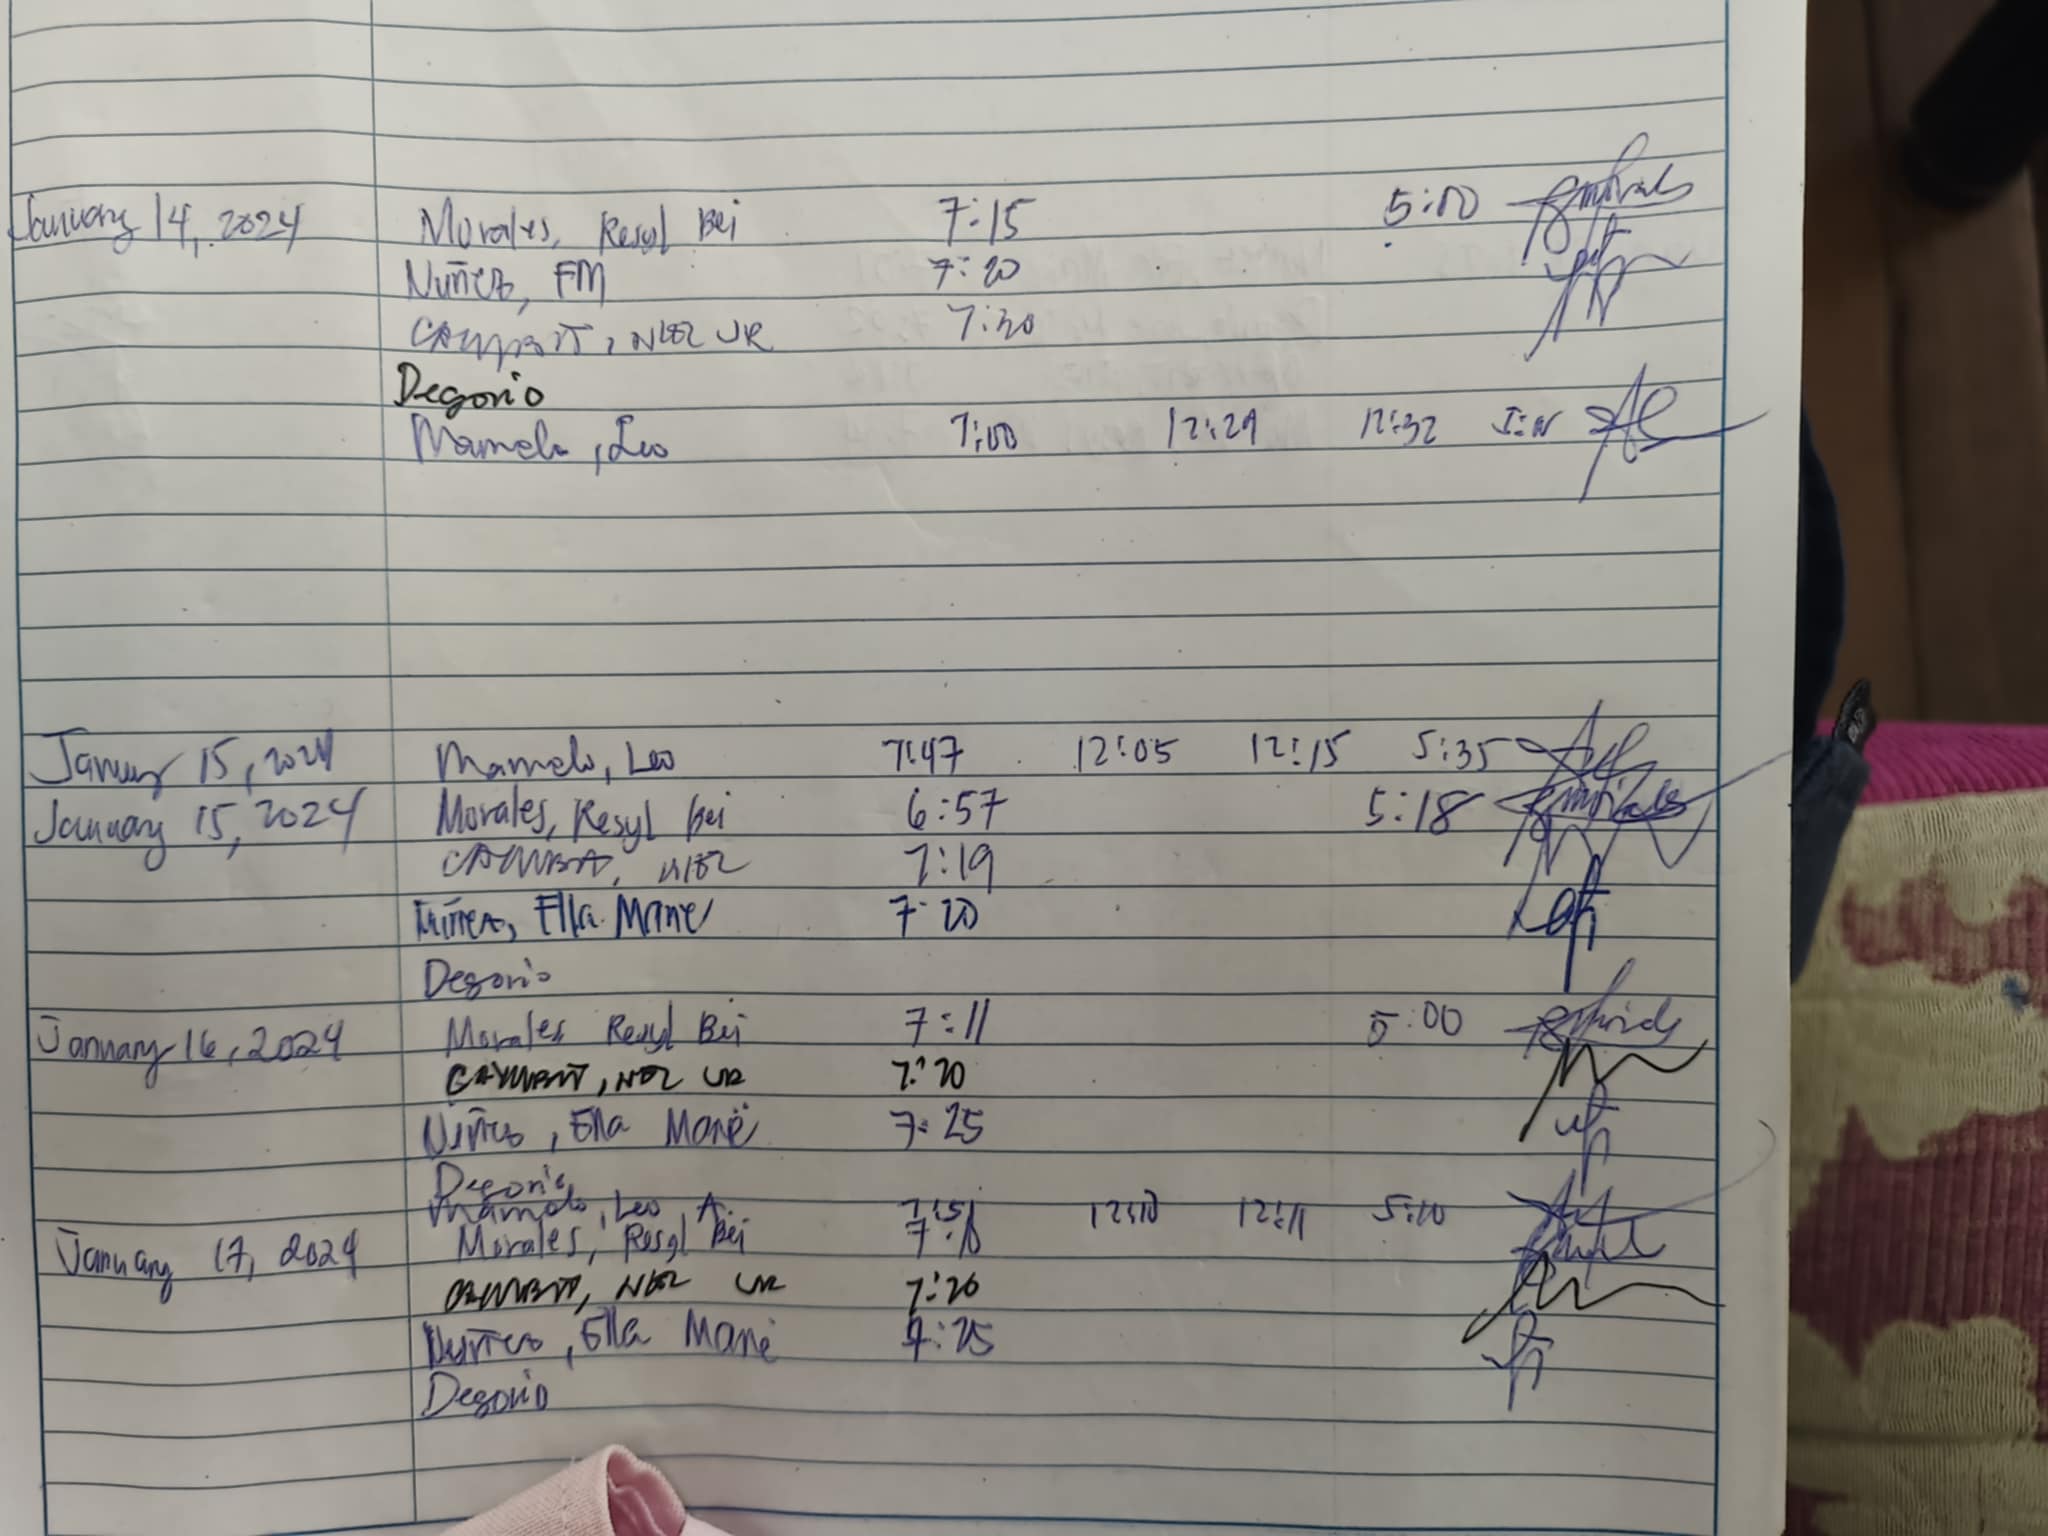 January 14, 2024 Morales, Resyl Bei 7:15 5:00
Nuñez, EM 7:20
7:30
Degorio
Mamelo, Leo 7:00 12:29 12:32
January 15, 2024 Mamelo, Leo 7:47 12:05 12:15 5:35
January 15, 2024 Morales, Resyl Bei 6:57 5:18
7:19
Nuñez, Ella Mane 7:20
Degorio
January 16, 2024 Morales Resyl Bei 7:11 5:00
7:20
Nuñez, Ella Mane 7:25
Degorio
Mamelo, Leo A. 7:51 12:10 12:11 5:10
January 17, 2024 Morales, Resyl Bei
7:20
Nuñez, Ella Mane 7:25
Degorio